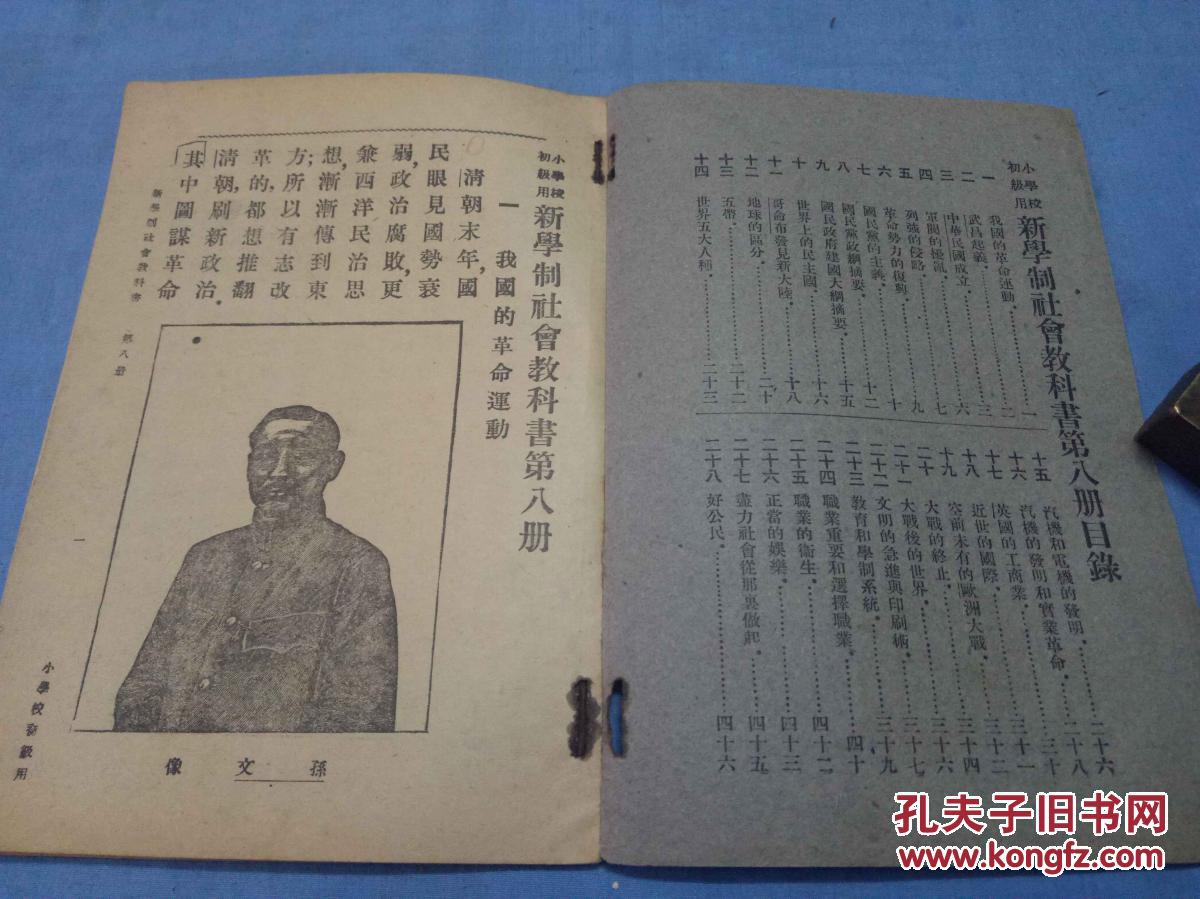 小學校
初級用
新學制社會教科書第八册目錄
一 我國的革命運動……一
二 武昌起義……二
三 中華民國成立……三
四 軍閥的擾亂……六
五 列強的侵略……七
六 革命勢力的復興……九
七 國民黨的主義……十
八 國民黨政綱摘要……十二
九 國民政府建國大綱摘要……十五
十 世界上的民主國……十六
十一 哥侖布發見新大陸……十八
十二 地球的區分……二十
十三 五帶……二十二
十四 世界五大人種……二十三
十五 汽機和電機的發明……二十六
十六 汽機的發明和實業革命……二十八
十七 英國的工商業……三十
十八 近世的國際……三十一
十九 空前未有的歐洲大戰……三十二
二十 大戰的終止……三十四
二十一 大戰後的世界……三十六
二十二 文明的急進與印刷術……三十七
二十三 教育和學制系統……三十九
二十四 職業重要和選擇職業……四十
二十五 職業的衛生……四十二
二十六 正當的娛樂……四十三
二十七 盡力社會從那裏做起……四十五
二十八 好公民……四十六
小學校
初級用
新學制社會教科書第八册
一 我國的革命運動
清朝末年,國
民眼見國勢衰
弱,政治腐敗,更
兼西洋民治思
想,漸漸傳到東
方;所以有志改
革的,都想推翻
清朝,刷新政治.
其中圖謀革命
孫文像
新學制社會教科書 第八册
一
小學校初級用
孔夫子旧书网
www.kongfz.com